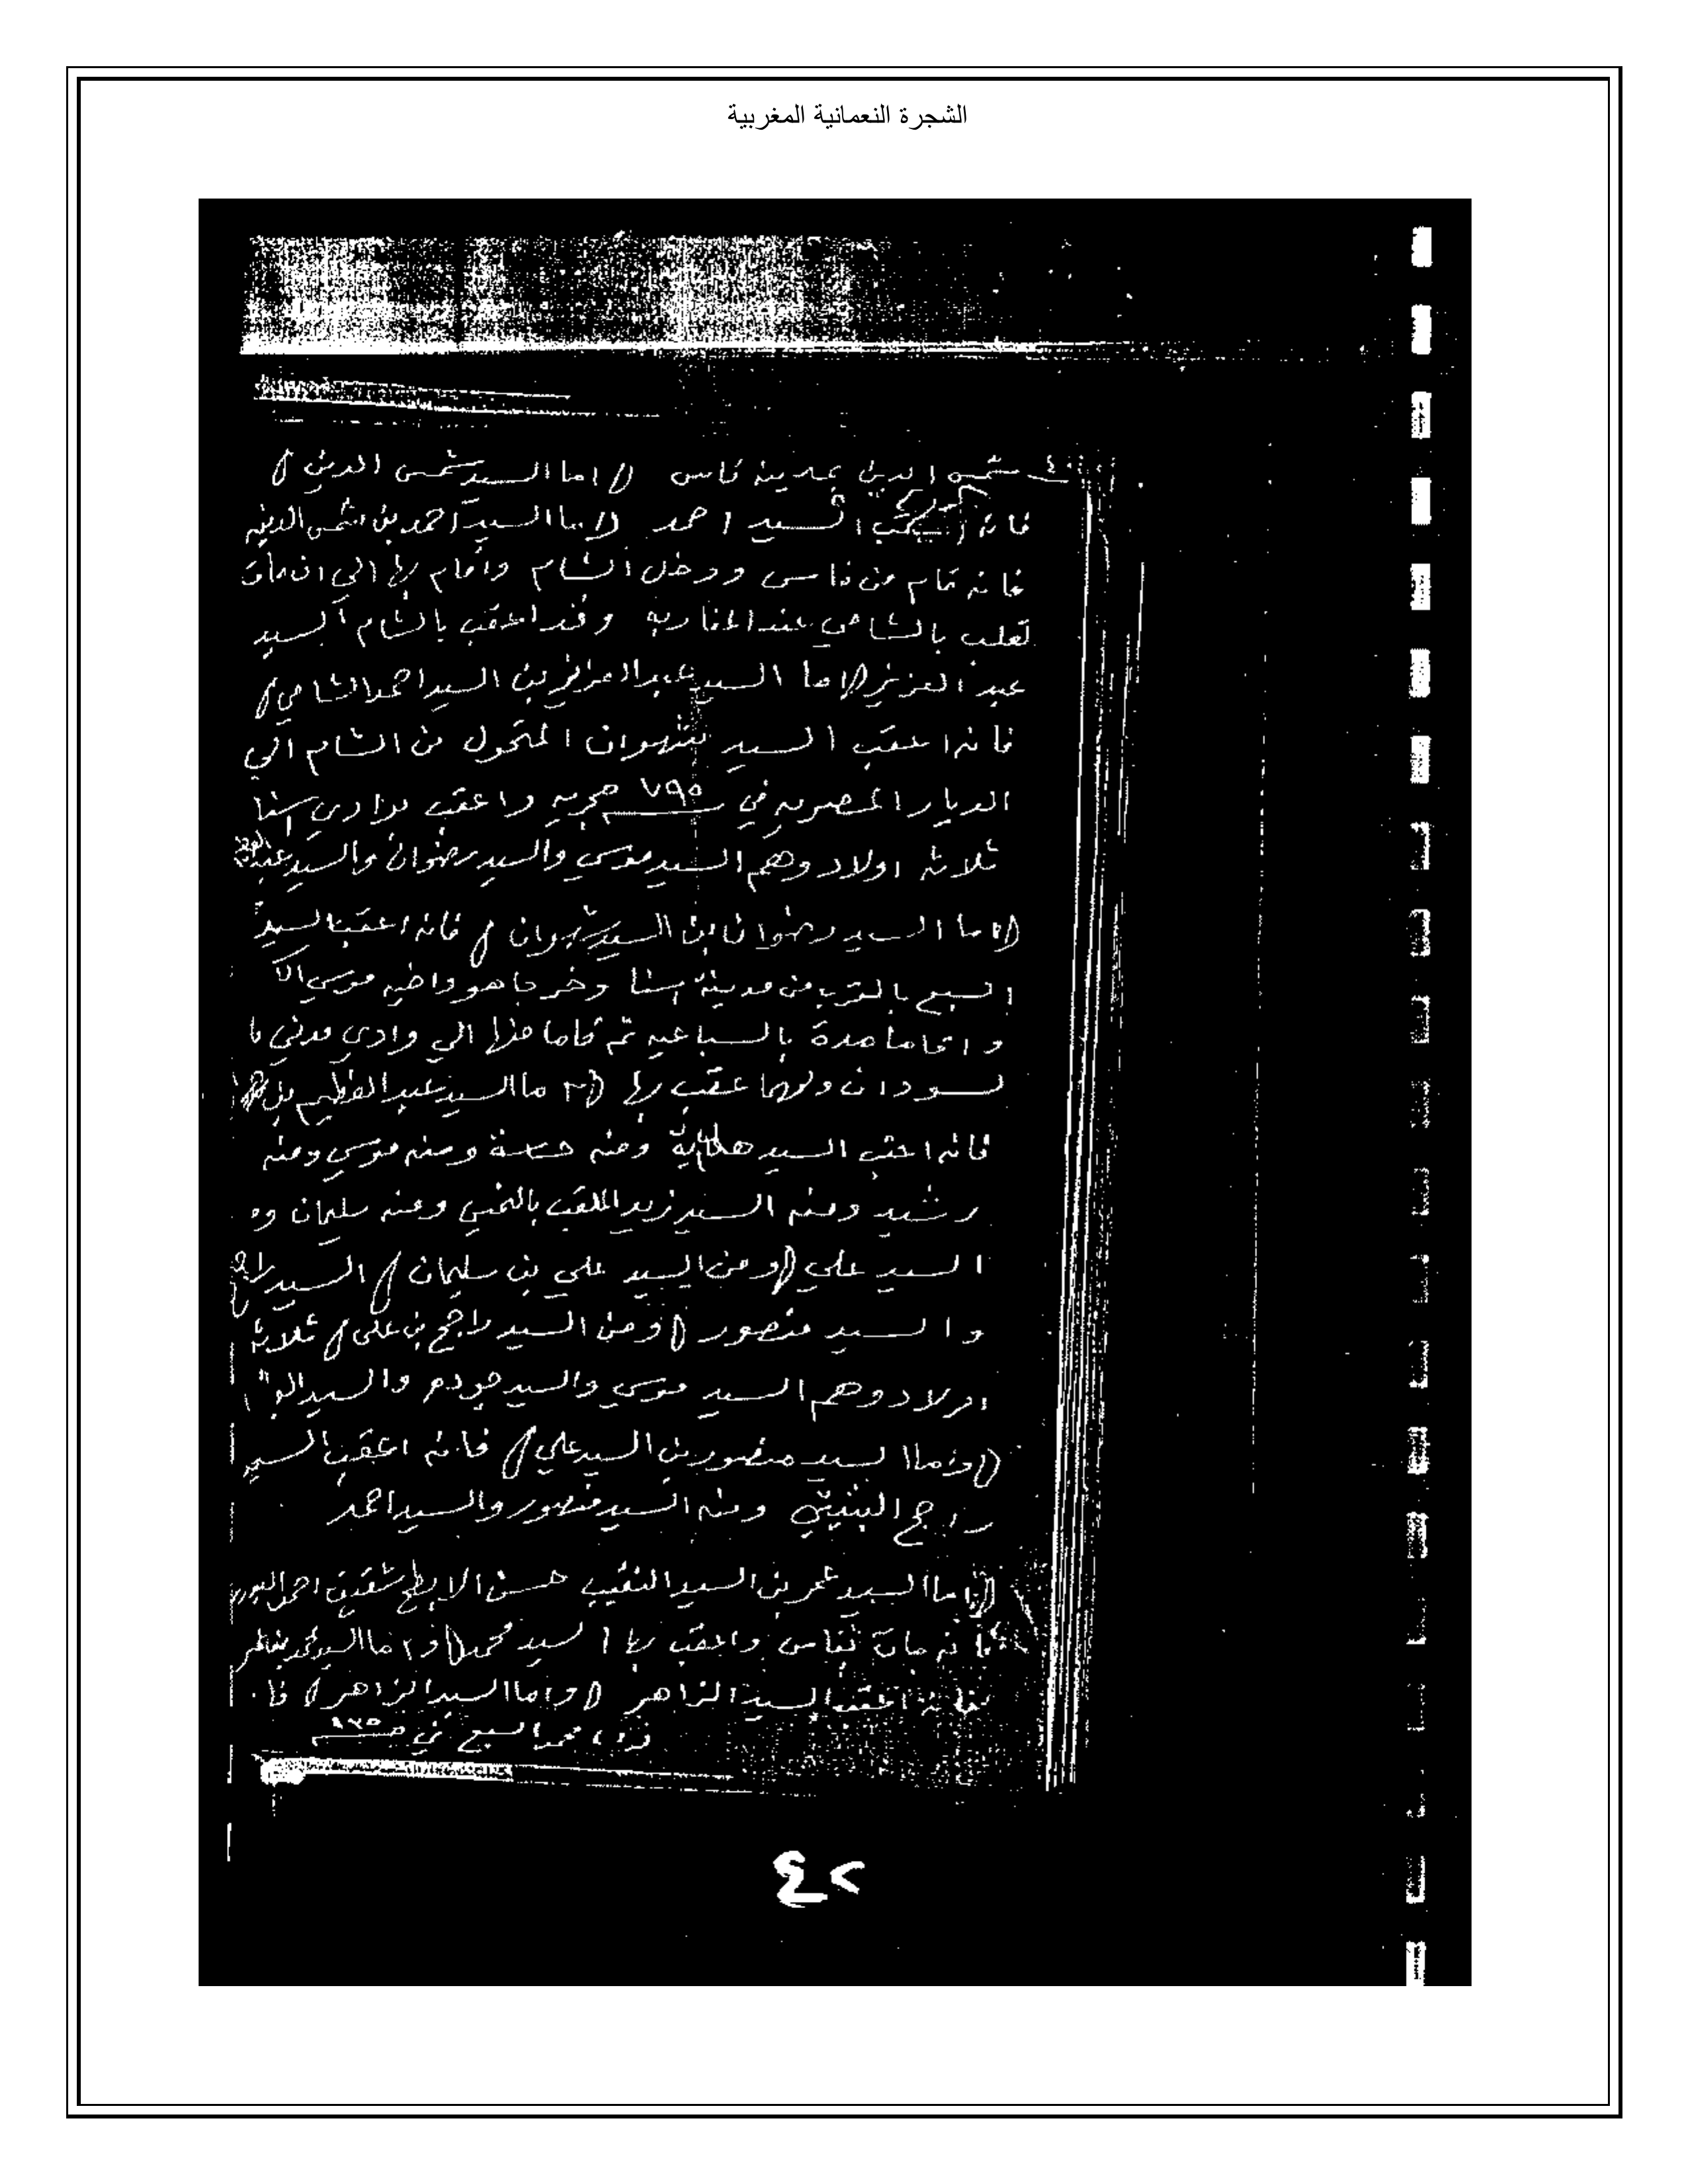 الشجرة النعمانية المغربية
شمس الدين بمدينة فاس (اما السيد شمس الدين)
فانه السيد احمد (اما السيد احمد بن شمس الدين
فانه قام من فاس ودخل الشام وأقام بها الي ان مات
بالشامي عند المغاربه وقد اعقب بالشام السيد
عبد العزيز (اما السيد عبد العزيز بن السيد احمد الشامي)
فانه اعقب السيد شهوان المتحول من الشام الي
الديار المصريه في ٧٩٥ هجريه واعقب بوادي اسنا
ثلاثه اولاد وهم السيد موسي والسيد رضوان والسيد
(اما السيد رضوان ابن السيد شهوان) فانه اعقب السيد
السبع بالقرب من مدينة اسنا وخرجا هو واخيه موسي
واقاما مدة بالسباعيه ثم قاما منها الي وادي مدني
لسودان ولهما عقب بها (اما السيد عبد العظيم بن
فانه اعقب السيد ومنه ومنه موسي ومنه
رشيد ومنه السيد زيد الملقب ومنه سليمان
السيد علي (ومن السيد علي بن سليمان) السيد راجح
والسيد منصور (ومن السيد راجح بن علي) ثلاثه
اولاد وهم السيد موسي والسيد والسيد
(واما السيد منصور بن السيد علي) فانه اعقب السيد
راجح ومنه السيد منصور والسيد احمد
(اما السيد عمر بن السيد النقيب حسن الابطح شقيق احمد
فانه مات بفاس واعقب بها السيد محمد (واما السيد محمد بن عمر
فانه اعقب السيد الزاهر (واما السيد الزاهر) فا
محمد السبع في
٤٢